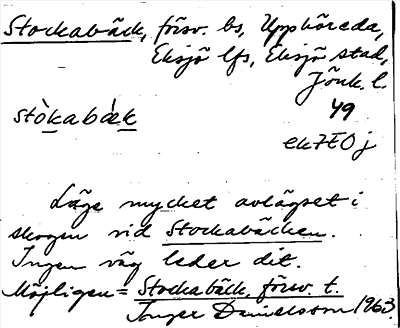 Stockabäck, försv. bs, Upphöreda,
Eksjö lfs, Eksjö stad,
Jönk. l.
stòkabák 49
ek7E0j
Läge mycket avlägset i
skogen vid Stockabäcken.
Ingen väg leder dit.
Möjligen = Stockabäck, försv. t.
Inger Danielsson 1963